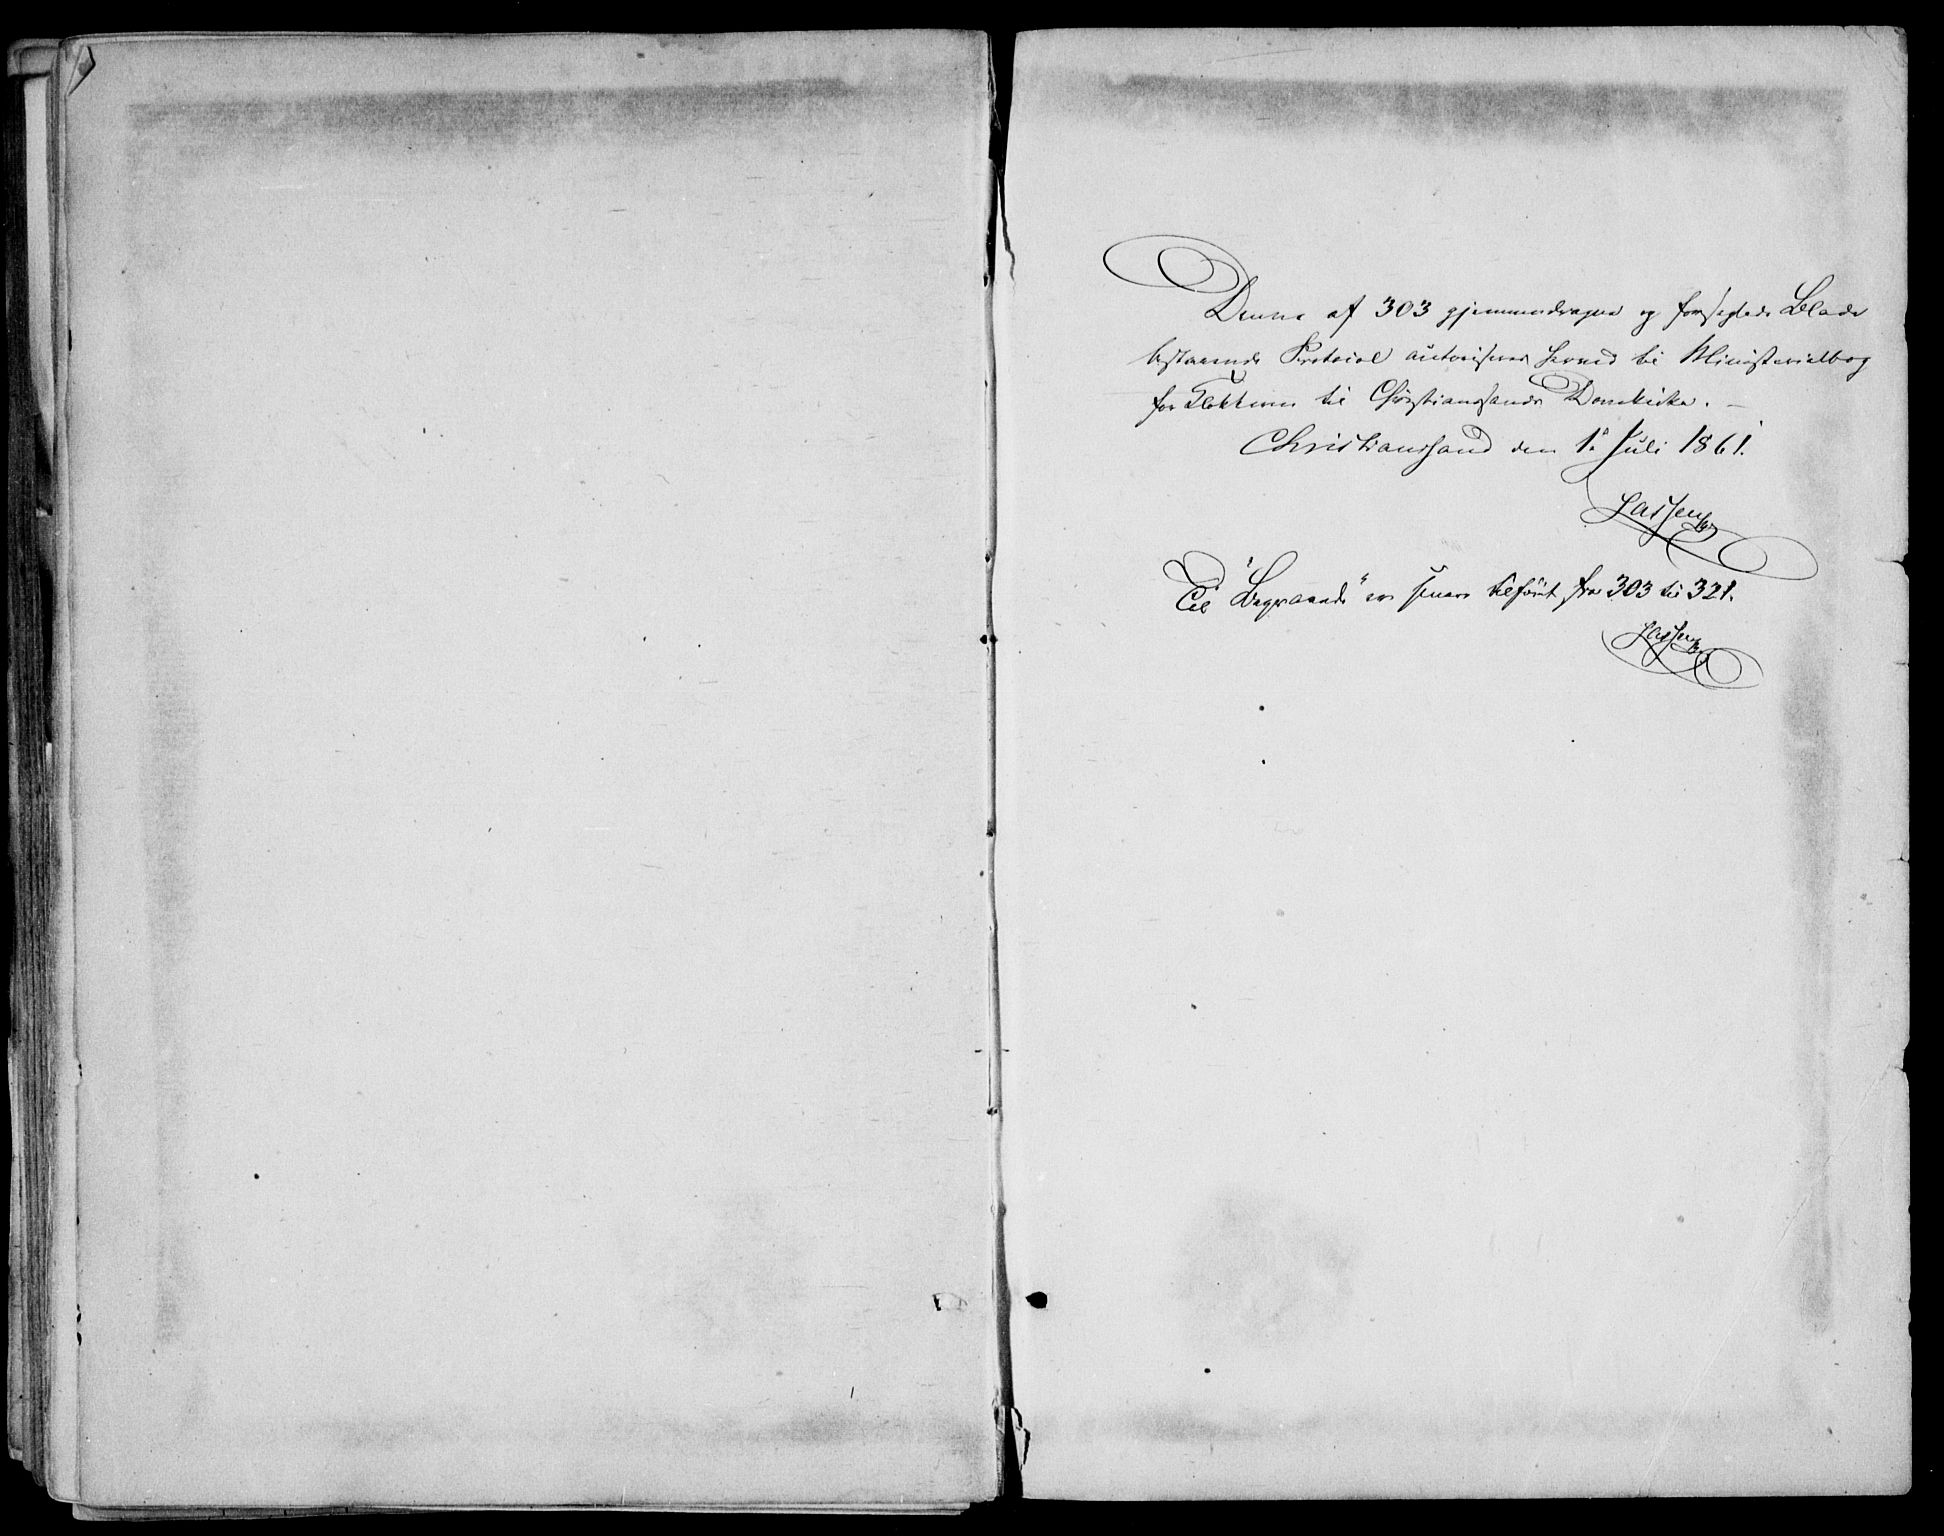 Denne af 303 gjennemdragne og forseglede Blade
bestaaende Protocol autoriseres herved til Ministerialbog
for Klokkeren til Christianssands Domkirke. —
Christianssand den 1. Juli 1861.
Lassen
Til "Begravede" er senere tilført fra 303 til 321.
Lassen